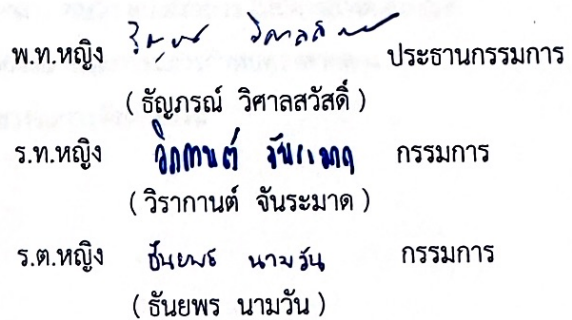 พ.ท.หญิง วิศาลสวัสดิ์ ประธานกรรมการ
( ธัญภรณ์ วิศาลสวัสดิ์ )
ร.ท.หญิง วิรากานต์ จันระมาด กรรมการ
( วิรากานต์ จันระมาด )
ร.ต.หญิง ธันยพร นามวัน กรรมการ
( ธันยพร นามวัน )